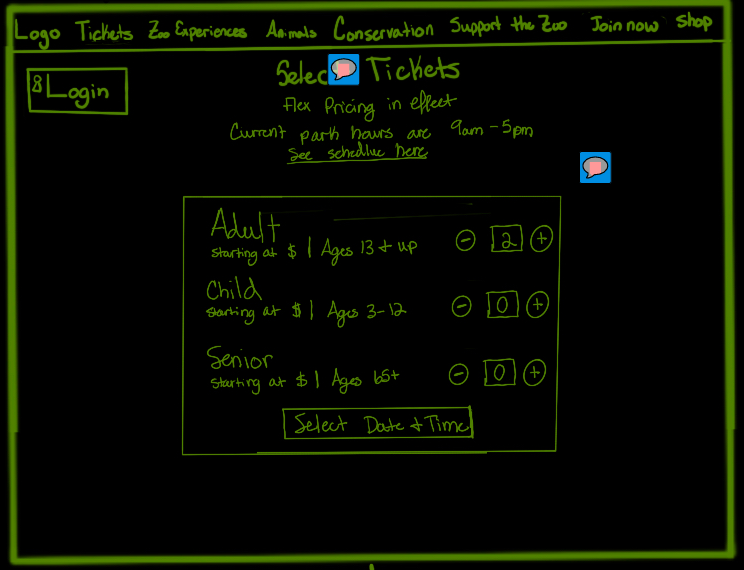 Logo Tickets Zoo Experiences Animals Conservation Support the Zoo Join now Shop
Login
Selec Tickets
Flex Pricing in effect
Current park hours are 9am - 5pm
See schedlue here
Adult
starting at $1 Ages 13 + up
- 2 +
Child
starting at $1 Ages 3-12
- 0 +
Senior
starting at $1 Ages 65+
- 0 +
Select Date + Time